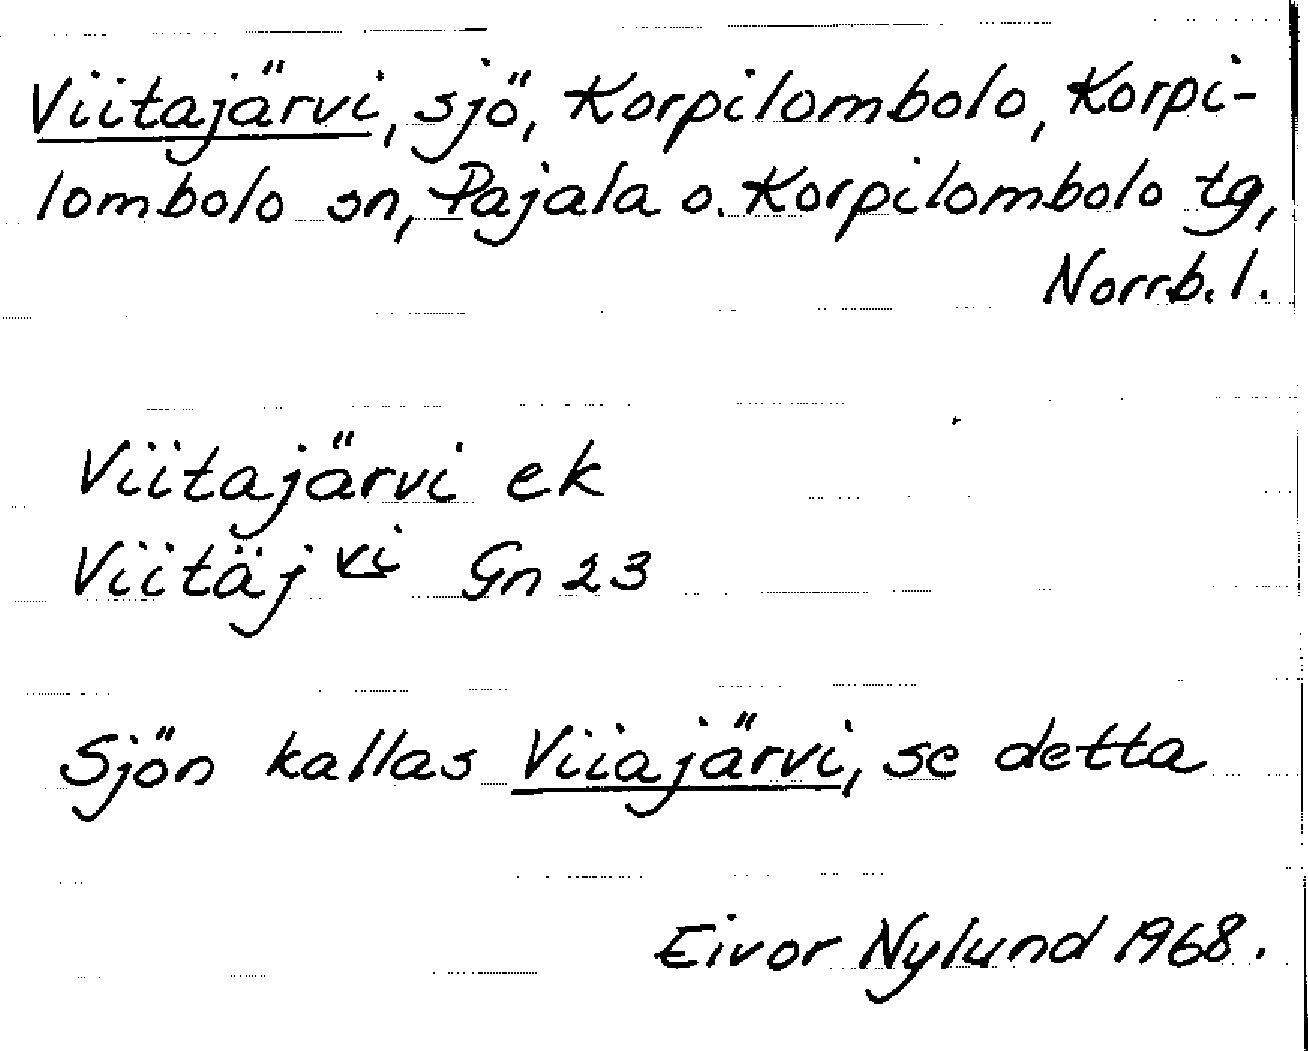 Viitajärvi, sjö, Korpilombolo, Korpi-
lombolo sn, Pajala o. Korpilombolo tg,
Norrb. l.
Viitajärvi ek
Viitäj vi Gn 23
Sjön kallas Viiajärvi, se detta
Eivor Nylund 1968.